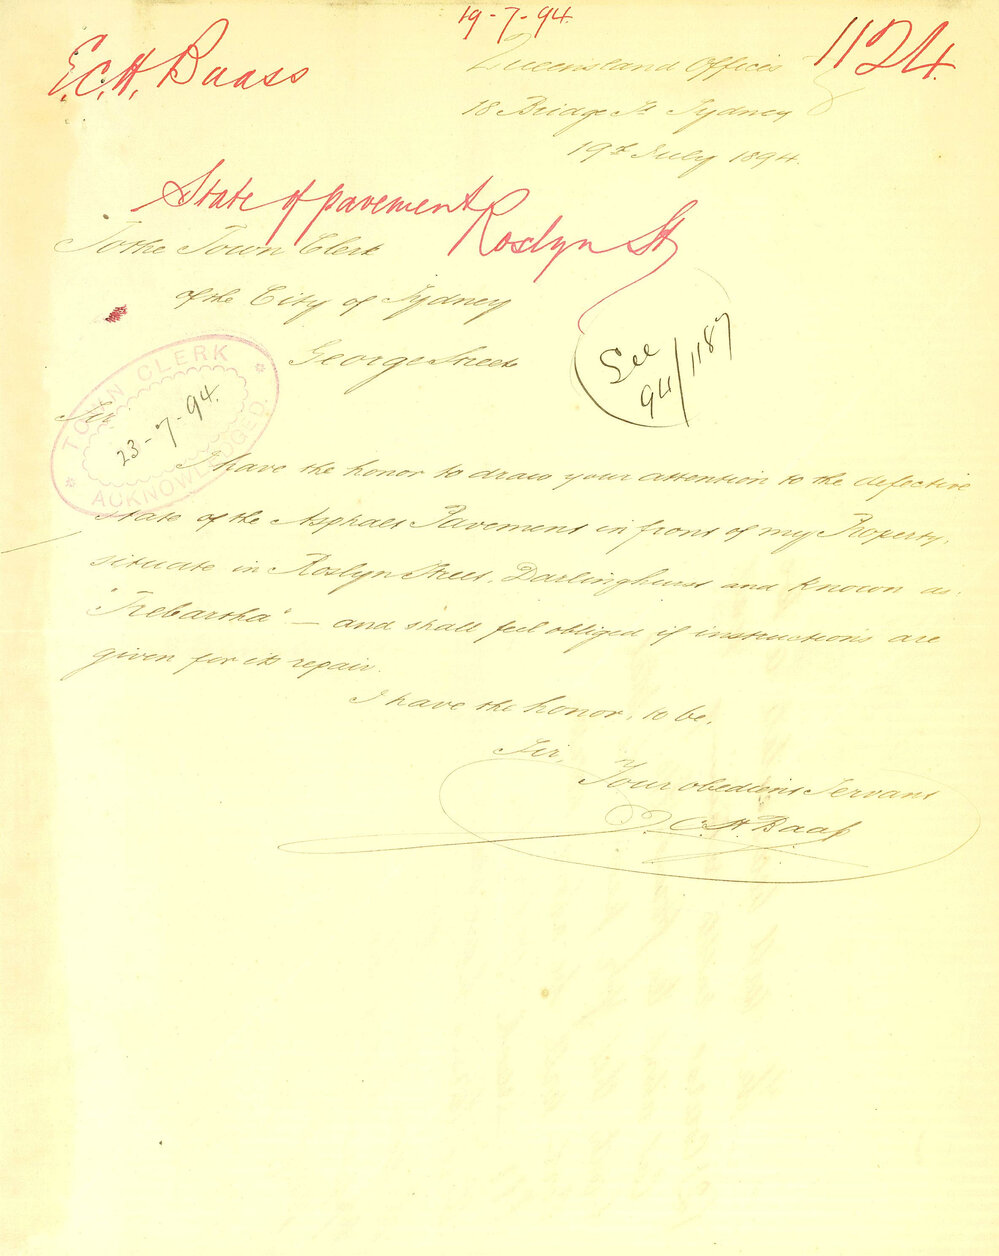 19-7-94.
E.C.H. Baass
1124.
Queensland Offices
18 Bridge St Sydney
19th July 1894.
State of pavement
Roslyn St
To the Town Clerk
of the City of Sydney
George Street
See
94/1187
TOWN CLERK
23-7-94.
ACKNOWLEDGED.
Sir
I have the honor to draw your attention to the defective
state of the Asphalt Pavement in front of my Property,
situate in Roslyn Street, Darlinghurst and known as,
"Trebartha" — and shall feel obliged if instructions are
given for its repair.
I have the honor, to be,
Sir,
Your obedient Servant
E. C. H. Baass